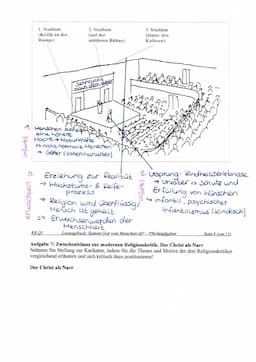 1. Stadium
(Kritik an der
Rampe)
2. Stadium
(auf der
mittleren Bühne)
3. Stadium
(hinter den
Kulissen)
Menschen sehen
eine höhere
Macht → Naturkräfte
→ nicht normale Menschen
→ Götter
infantil
erwachsen
Erziehung zur Realität
→ Wachstums- & Reife-
prozess
→ Religion wird überflüssig/
Mensch ist geheilt
→ Erwachsenwerden der
Menschheit
infantil
Ursprung: Kindheitserlebnisse
→ Urvater → Schutz und
Erfüllung von Wünschen
→ infantil, psychischer
Infantilismus (kindisch)
KR Q1
Aufgabe 7: Zwischenbilanz zur modernen Religionskritik. Der Christ als Narr
Nehmen Sie Stellung zur Karikatur, indem Sie die Thesen und Motive der drei Religionskritiker
vergleichend erläutern und sich kritisch dazu positionieren!
Der Christ als Narr